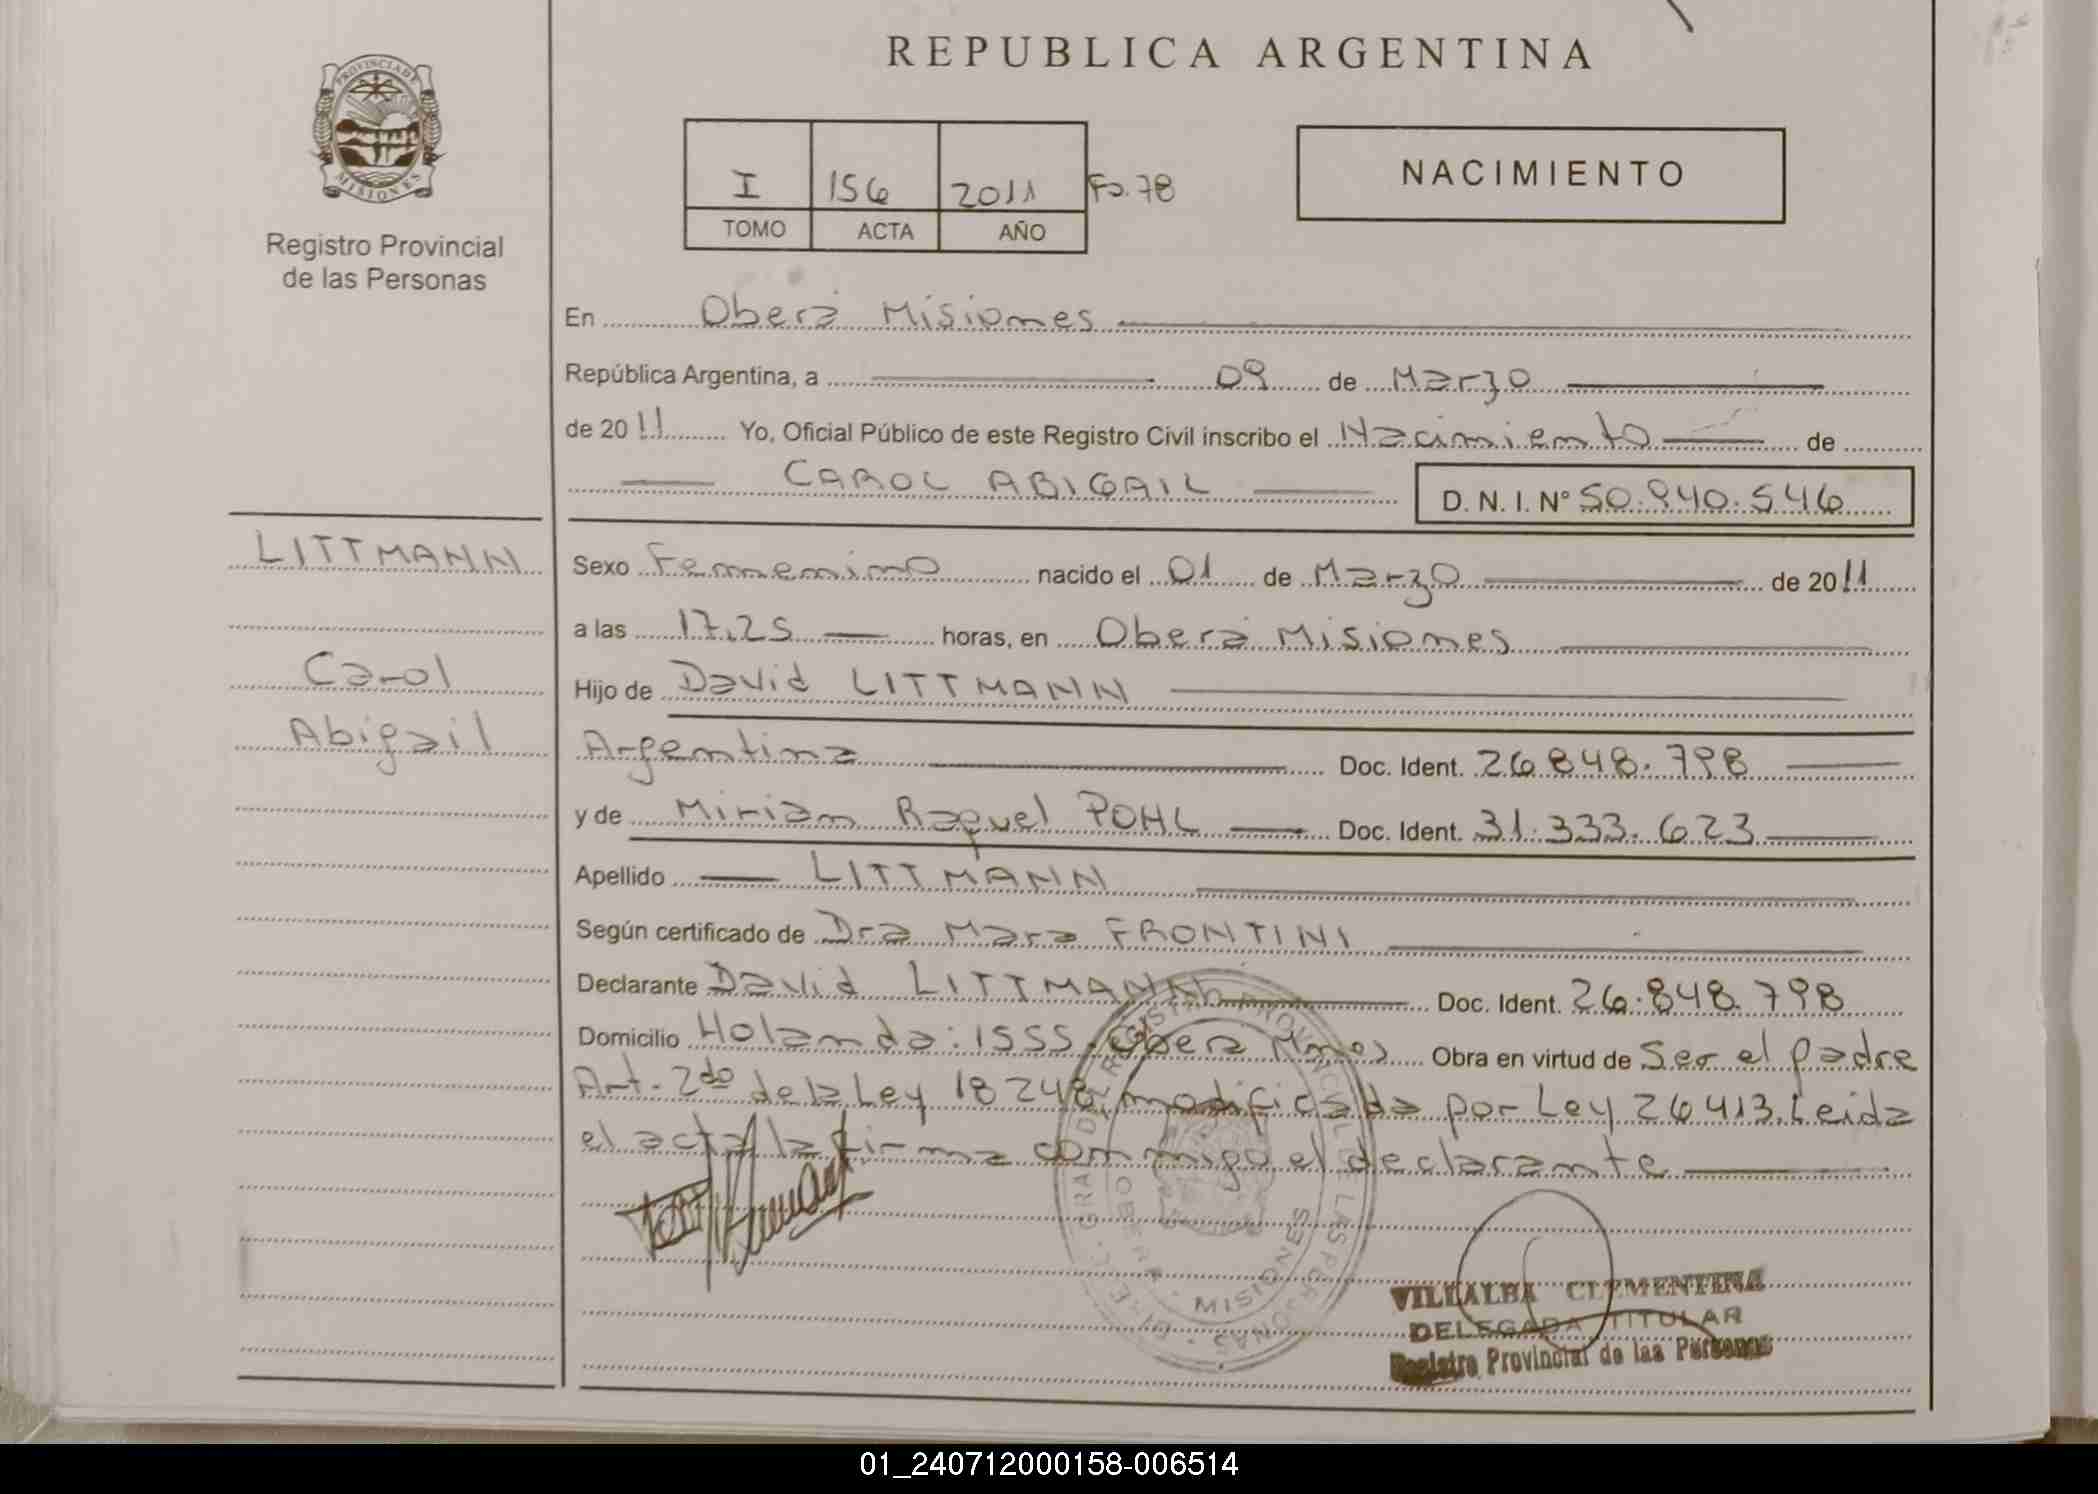 REPUBLICA ARGENTINA
PROVINCIA DE MISIONES
Registro Provincial
de las Personas
I 156 2011 Fo. 78
TOMO ACTA AÑO
NACIMIENTO
En Oberá Misiones
República Argentina, a 09 de Marzo
de 2011 Yo, Oficial Público de este Registro Civil inscribo el Nacimiento de
CAROL ABIGAIL D. N. I. Nº 50.940.546
LITTMANN
Carol
Abigail
Sexo Femenino nacido el 01 de Marzo de 2011
a las 17,25 horas, en Oberá Misiones
Hijo de David LITTMANN
Argentina Doc. Ident. 26.848.798
y de Miriam Raquel POHL Doc. Ident. 31.333.623
Apellido LITTMANN
Según certificado de Dra Mara FRONTINI
Declarante David LITTMANN Doc. Ident. 26.848.798
Domicilio Holanda: 1555. Obera Mnes Obra en virtud de Ser el padre
Art. 2do de la Ley 18248, modificada por Ley 26413. Leida
el acta la firma conmigo el declarante
MISIONES
VILLALBA CLEMENTINA
DELEGADA TITULAR
Registro Provincial de las Personas
01_240712000158-006514